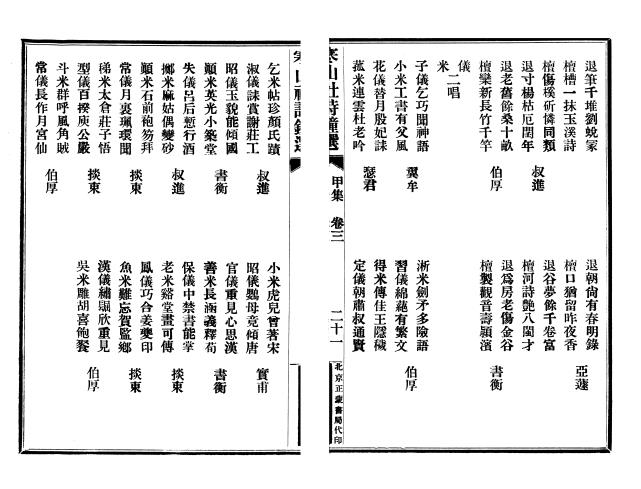 退筆千堆劉蛻冢
退朝尙有春明錄
檀槽一抹玉溪詩
檀口猶留昨夜香
亞蘧
檀傷樸斲憐同類
退谷夢餘千卷富
退寸楊枯厄閏年
檀河詩艷八閩才
叔進
退老舊餘桑十畝
退爲房老傷金谷
檀欒新長竹千竿
檀製觀音壽潁濱
伯厚
書衡
儀
米 二唱
子儀乞巧聞神語
淅米劍矛多險語
小米工書有父風
習儀綿蕝有繁文
翼牟
伯厚
花儀替月殷妃誄
得米傳佳王隱穢
菰米連雲杜老吟
定儀朝肅叔通賢
瑟君
寒山社詩鐘選
甲集 卷三
二十一
北京正蒙書局代印
乞米帖珍顏氏蹟
小米虎兒曾著宋
淑儀誄賞謝莊工
昭儀鸚母竟傾唐
叔進
實甫
昭儀玉貌能傾國
官儀重見心思漢
顚米英光小築堂
善米長涵義釋荀
書衡
書衡
失儀呂后慙行酒
保儀中禁書能掌
擲米麻姑偶變砂
老米谿堂畫可傳
叔進
叔進
顚米石前袍笏拜
鳳儀巧合姜夔印
常儀月裏珮環聞
魚米難忘賀監鄉
掞東
掞東
稊米太倉莊子悟
漢儀繡欣重見
型儀百揆庾公嚴
吳米雕胡喜飽餐
掞東
伯厚
斗米群呼風角賊
常儀長作月宮仙
伯厚